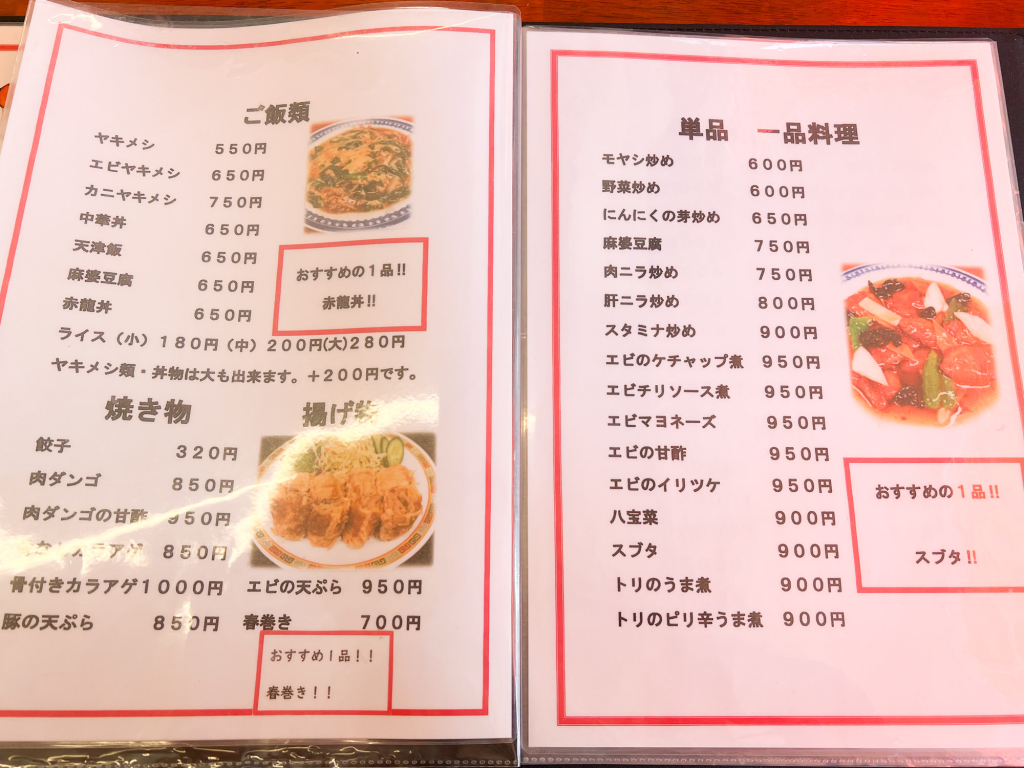 ご飯類
ヤキメシ 550円
エビヤキメシ 650円
カニヤキメシ 750円
中華丼 650円
天津飯 650円
麻婆豆腐 650円
赤龍丼 650円
おすすめの1品!!
赤龍丼!!
ライス(小)180円(中)200円(大)280円
ヤキメシ類・丼物は大も出来ます。+200円です。
焼き物
餃子 320円
肉ダンゴ 850円
肉ダンゴの甘酢 950円
カラアゲ 850円
骨付きカラアゲ 1000円
豚の天ぷら 850円
揚げ物
エビの天ぷら 950円
春巻き 700円
おすすめ1品!!
春巻き!!
単品 一品料理
モヤシ炒め 600円
野菜炒め 600円
にんにくの芽炒め 650円
麻婆豆腐 750円
肉ニラ炒め 750円
肝ニラ炒め 800円
スタミナ炒め 900円
エビのケチャップ煮 950円
エビチリソース煮 950円
エビマヨネーズ 950円
エビの甘酢 950円
エビのイリツケ 950円
八宝菜 900円
スブタ 900円
トリのうま煮 900円
トリのピリ辛うま煮 900円
おすすめの1品!!
スブタ!!